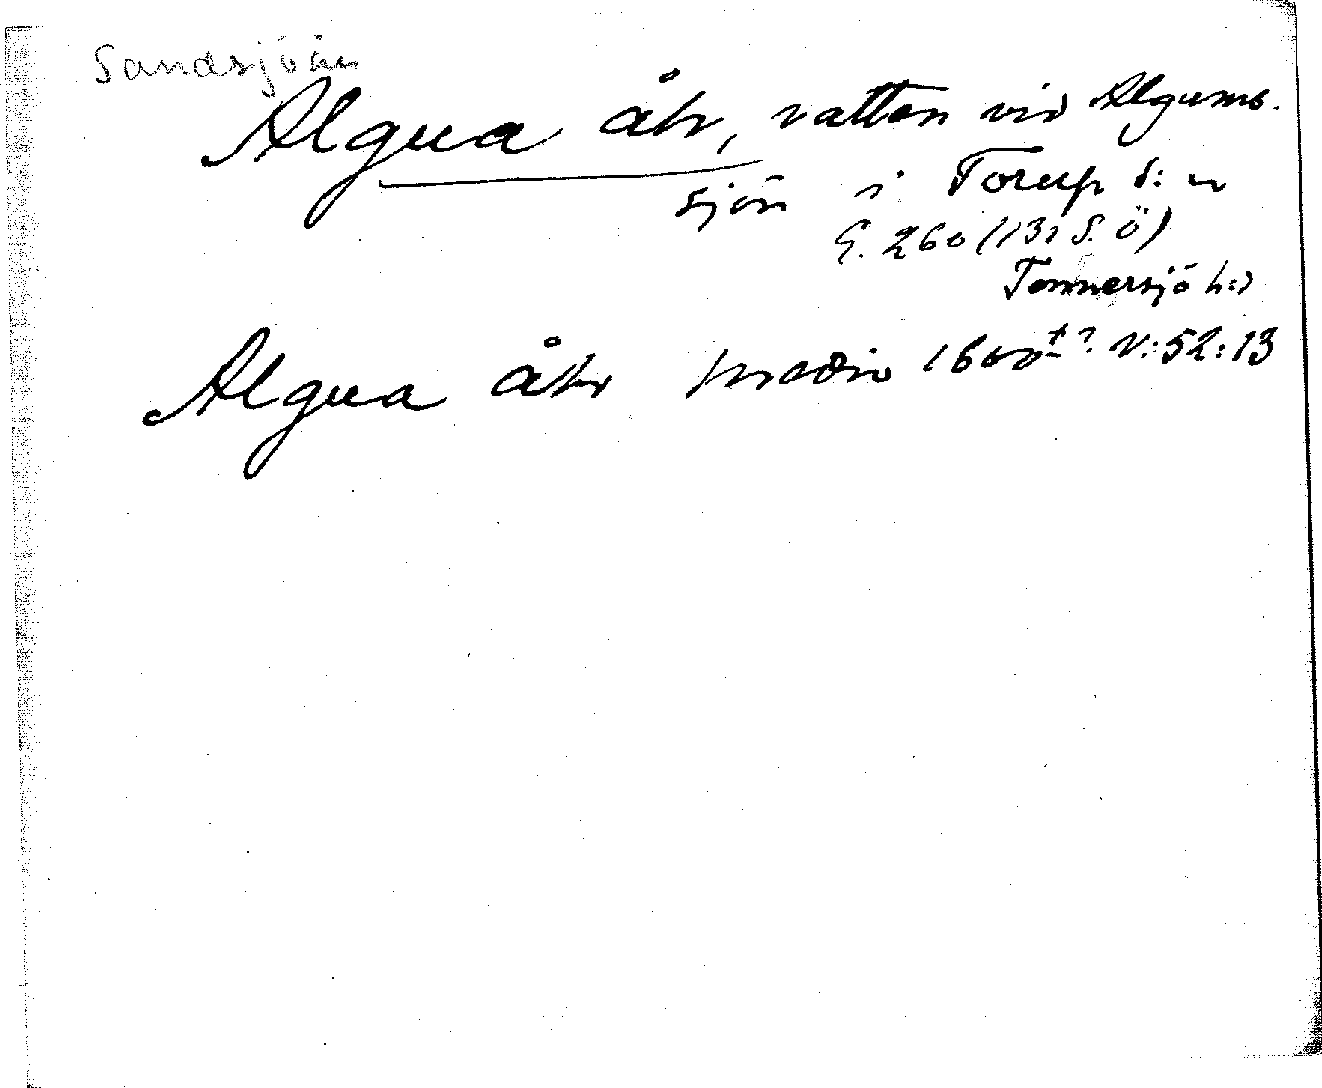 Sandsjöån
Algua åhr, vatten vid Algums-
sjön i Torup s:n
G. 260 (131 S. Ö)
Tönnersjö h:d
Algua åhr 1600 t? V:52:13